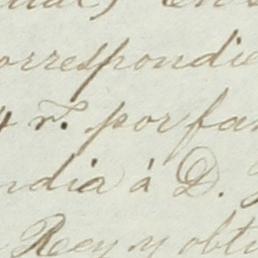 orrespondie
4 r.s por fan
ndia á D.
Rey y obtu